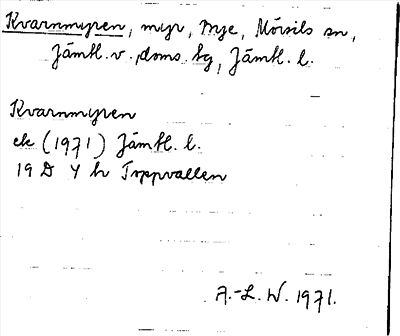 Kvarnmyren, myr, Mye, Mörsils sn,
Jämtl. v. doms. tg, Jämtl. l.
Kvarnmyren
ek (1971) Jämtl. l.
19 D 4 h Toppvallen
A.-L. W. 1971.